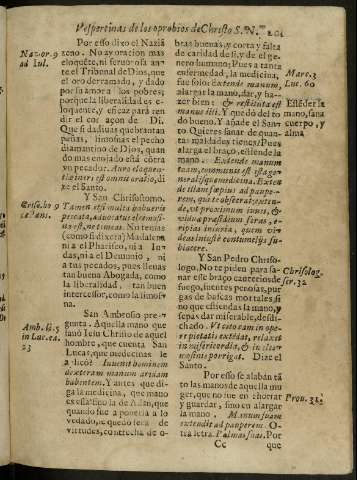 Vespertinas de los oprobios de Christo S. N. 201
Nazor. 9
ad Iul.
Por esso dixo el Naziã
zeno. No ay oracion mas
eloquẽte, ni fervorosa an-
te el Tribunal de Dios, que
el oro derramado, y dado
por su amor a los pobres;
porque la liberalidad es e-
loquente, y eficaz para ren
dir el coraçon de Dios.
Que si dadivas quebrantan
peñas, limosnas el pecho
diamantino de Dios, quan
do mas enojado està cõtra
vn pecador. Auro eloquen-
tiæ inest omnis oratio, di
xe el Santo.
Y San Chrisostomo.
Tamen etsi multa habueris
peccata, advocatus eleemosi-
na est, ne timeas. No temas
(como si dixera) Madalena
ni a el Phariseo, ni a Iu-
das, ni a el Demonio, ni
a tus pecados, pues llevas
tan buena Abogada, como
la liberalidad, tan buen
intercessor, como la limos-
na.
San Ambrosio pre-
gunta. Aquella mano que
sanò Iesu Christo de aquel
hombre, que cuenta San
Lucas, que medecina se
le dicò? Iuvenit hominem
dexteram manum aridam
habentem. Y antes que di-
ga la medicina, que mano
es essa? sino la de Adan, que
quando fue a ponerla a lo
vedado, se quedò seca de
virtudes, contrecha de o-
bras buenas, y corta y falta
de caridad de si, y de el ge-
nero humano; Pues a tanta
enfermedad, la medicina,
fue solo: Extende manum,
alargar la mano, dar, y ha-
zer bien: & restituta est
manus illi. Y quedò del to
do buena. Y añade el San-
to. Quieres sanar de quan-
tas maldades tienes? Pues
alarga el braço, estiende la
mano. Extende manum
tuam, communis est ista ge-
neralisque medicina. Exten
de illam sæpius ad paupe-
rem, qui te obsecrat; exten-
de, vt proximum iuves, &
viduæ præsidium feras, e-
ripias iniuria, quem vi-
deas iniustè contumelijs su-
biacere.
Y San Pedro Chriso-
logo. No te piden para sa-
nar esse braço cauterios de
fuego, fuentes penosas, pur
gas de bascas mortales, si
no que estiendas la mano, y
sepas dar miserable, desdi-
chado. Vt esto eam in ope-
r pietatis extẽdat, relaxet
in misericordia, & in elee-
mosinis porrigat. Dize el
Santo.
Por esso se alabãn tã
to las manos de aquella mu
ger, que no fue en ahorrar
y guardar, sino en alargar
la mano. Manum suam
extendit ad pauperem. O-
tra letra. Palmas suas. Por
Cc que
Amb. li. 5.
in Luc. ca.
23
Marc. 3
Luc. 60
mano, sana
cuerpo, y
alma
Chrisolog.
ser. 32
Prou. 31.